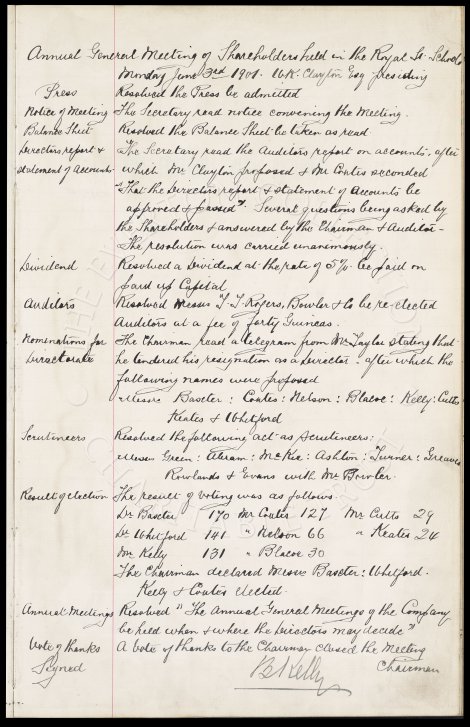 Annual General Meeting of Shareholders held in the Royal St. School
Monday June 3rd 1901. W.R. Clayton Esq presiding
Press Resolved the Press be admitted
Notice of Meeting The Secretary read notice convening the Meeting.
Balance Sheet Resolved the Balance Sheet be taken as read
Directors report & The Secretary read the Auditors report on accounts, after
statement of Accounts which Mr Clayton proposed & Mr Coutes seconded
"That the Directors report & statement of accounts be
approved & passed". Several questions being asked by
the Shareholders & answered by the Chairman & Auditor -
The resolution was carried unanimously.
Dividend Resolved a Dividend at the rate of 5% be paid on
paid up Capital
Auditors Resolved Messrs T. T. Rogers, Bowler & Co be re-elected
Auditors at a fee of forty Guineas.
Nominations for The Chairman read a telegram from Mr Taylor stating that
Directorate he tendered his resignation as a Director - after which the
following names were proposed
Messrs Baxter : Coates : Nelson : Blacoe : Kelly : Cutts
Keates & Whitford
Scrutineers Resolved the following act as scrutineers :
Messrs Green : Abram : McKie : Ashton : Turner : Greaves
Rowlands & Evans with Mr Bowler.
Result of election The result of voting was as follows
Dr Baxter 170 Mr Coates 127 Mr Cutts 29
Dr Whitford 141 " Nelson 66 " Keates 24
Mr Kelly 131 " Blacoe 30
The Chairman declared Messrs Baxter : Whitford.
Kelly & Coates elected.
Annual Meetings Resolved "The Annual General Meetings of the Company
be held when & where the Directors may decide"
Vote of thanks A vote of thanks to the Chairman closed the Meeting
Signed B Kelly Chairman